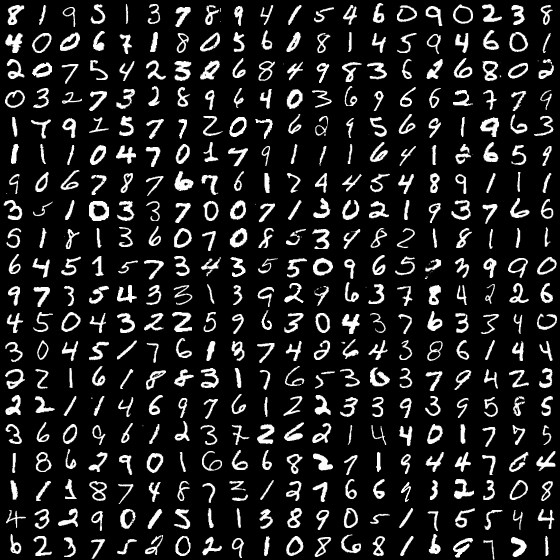 8 1 9 5 1 3 7 8 9 4 1 5 4 6 0 9 0 2 3 8
4 0 0 6 7 1 8 0 5 6 0 8 1 4 5 9 4 6 0 1
2 0 7 5 4 2 3 2 6 8 4 9 8 3 6 2 6 8 0 2
0 3 2 7 3 2 8 9 6 4 0 3 6 9 6 6 2 7 7 9
1 7 9 2 5 7 7 2 0 7 6 2 9 5 6 9 1 9 6 3
1 1 1 0 4 7 0 1 7 9 1 1 1 6 4 1 2 6 5 9
9 0 6 7 8 7 6 7 6 1 7 4 4 5 4 8 9 1 1 1
3 5 1 0 3 3 7 0 0 7 1 3 0 2 1 9 3 7 6 6
5 1 8 1 3 6 0 7 0 8 5 3 9 8 2 1 8 1 1 1
6 4 5 1 5 7 3 4 3 5 5 0 9 6 5 3 9 9 0
9 7 3 5 4 3 3 1 3 9 2 9 6 3 7 8 4 2 2 6
4 5 0 4 3 2 2 5 9 6 3 0 4 3 7 6 3 3 4 0
3 0 4 5 1 7 6 1 3 7 4 2 6 4 3 8 6 1 4 4
2 2 1 6 1 8 8 3 1 7 6 5 3 0 3 7 9 4 2 3
2 2 1 1 4 6 9 7 6 1 2 2 3 3 9 3 9 5 8 5
3 6 0 9 6 1 2 3 7 2 6 2 1 4 4 0 1 7 7 5
1 8 6 2 9 0 1 6 6 6 8 2 7 1 9 4 4 7 6 4
1 1 1 8 7 4 8 7 3 1 2 7 6 6 9 3 2 3 0 8
4 3 2 9 0 1 5 1 1 3 8 9 0 5 1 7 5 5 4 4
6 2 3 7 5 2 0 2 9 1 0 8 6 8 1 6 8 7 7 1